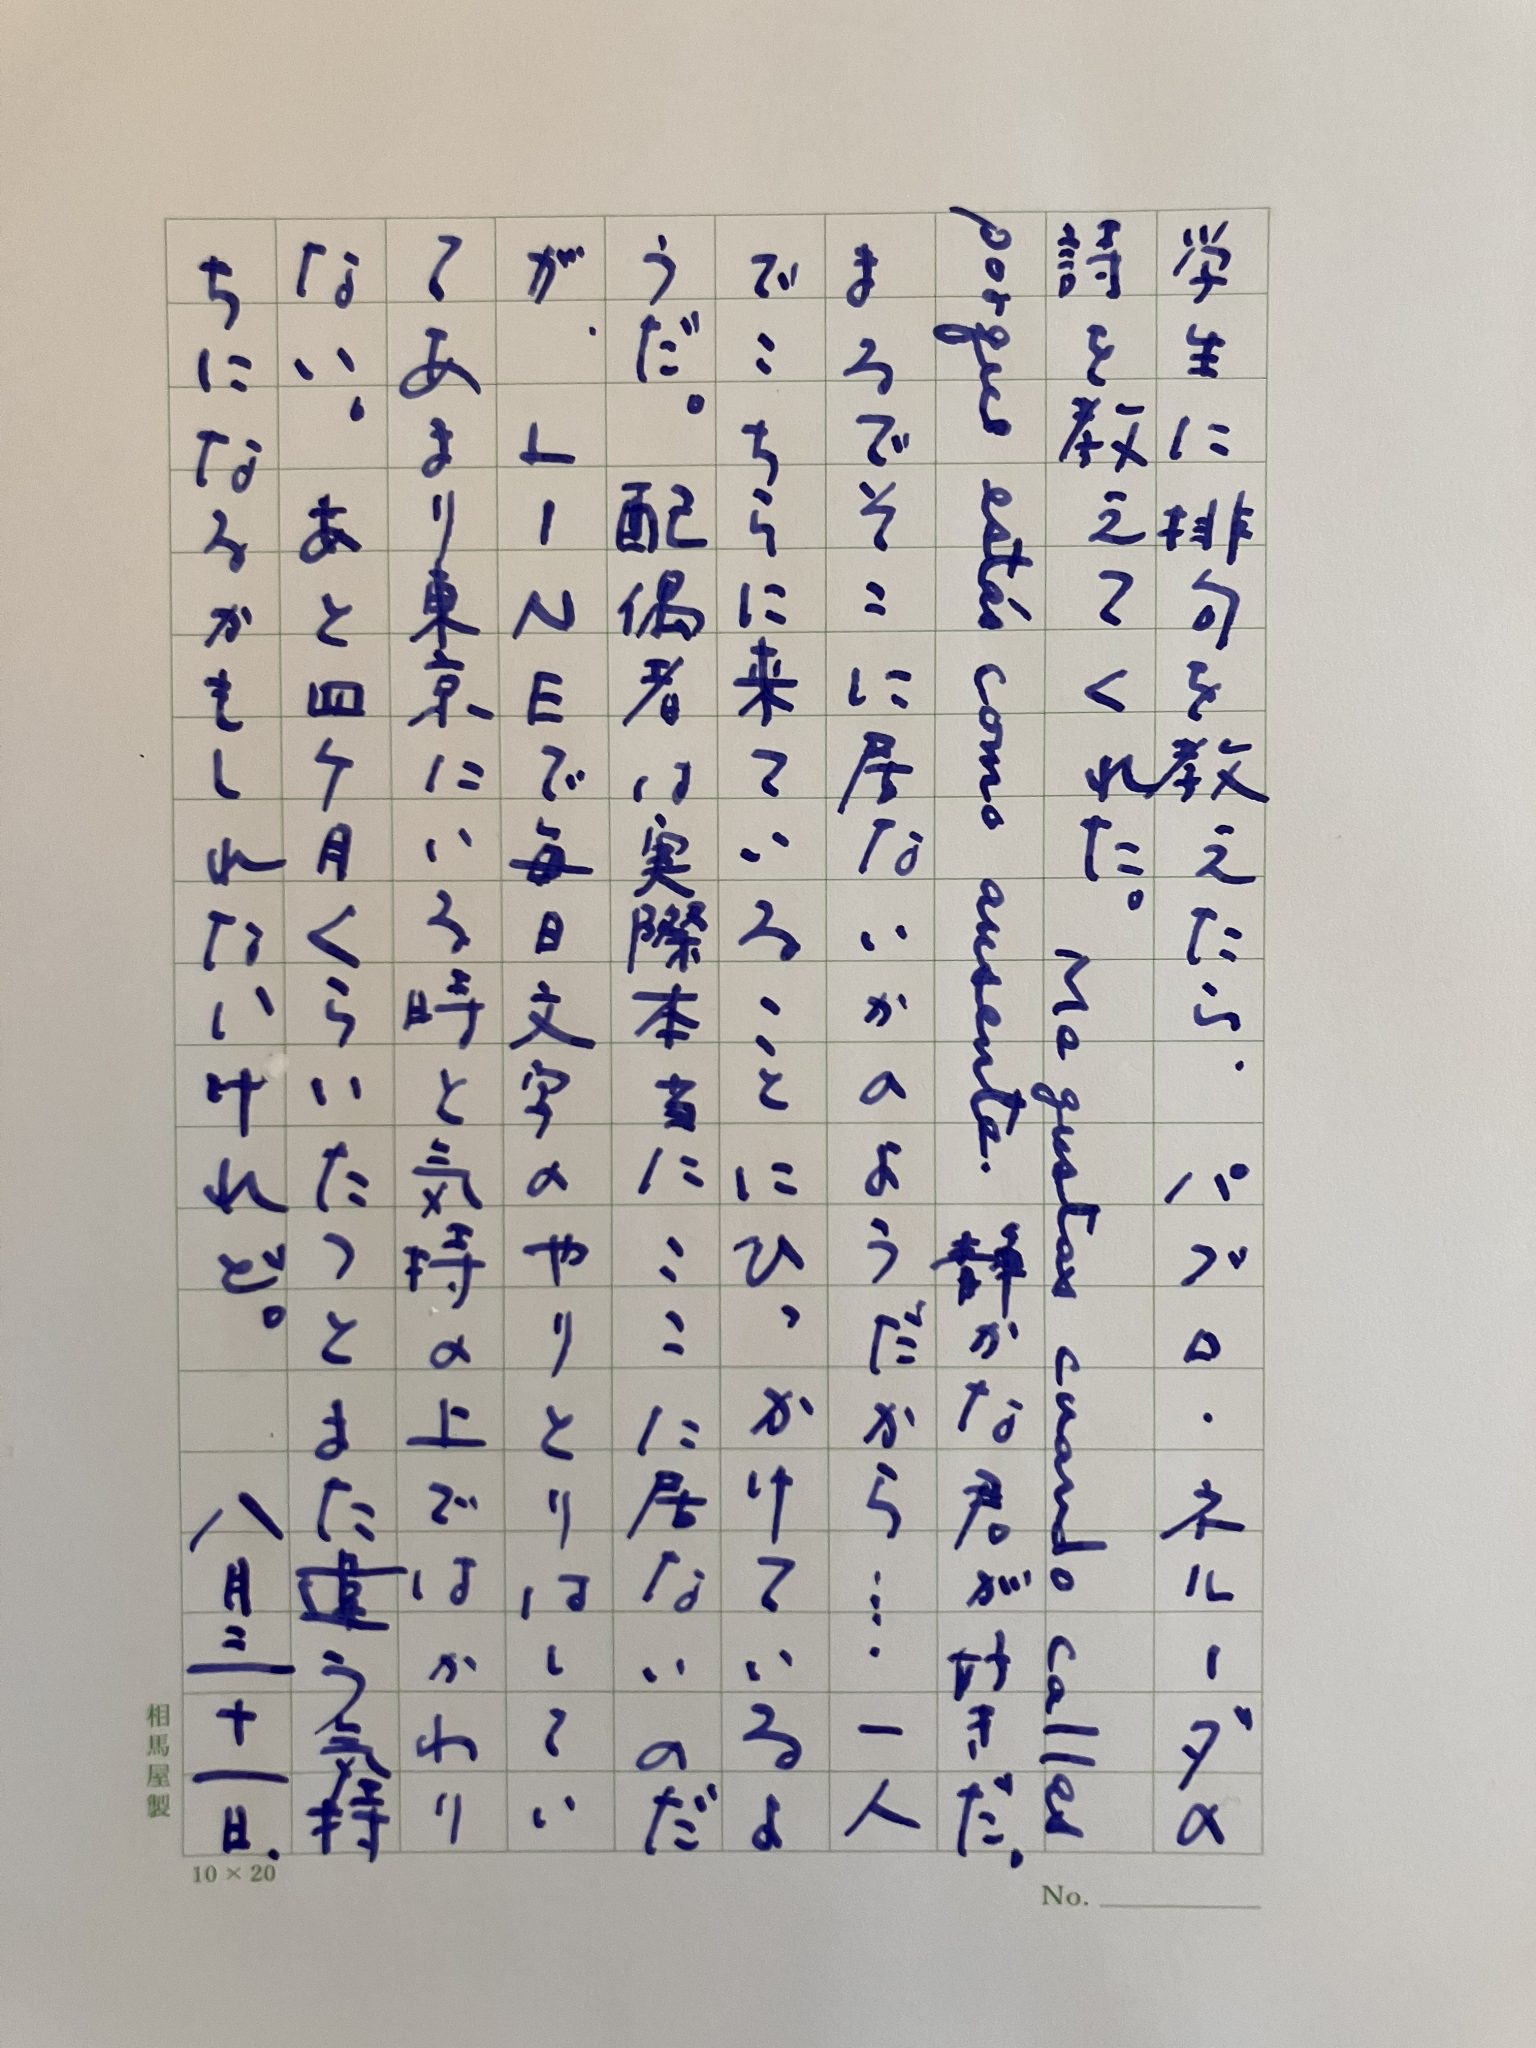 学生に排句を教えたら、パブロ・ネルーダの
詩を教えてくれた。Me gustas cuando callas
porque estás como ausente. 静かな君が好きだ。
まるでそこに居ないかのようだから…、一人
でこちらに来ていることにひっかけているよ
うだ。配偶者は実際本当にここに居ないのだ
が、LINEで毎日文字のやりとりはしてい
てあまり東京にいる時と気持の上ではかわり
ない。あと四ケ月くらいたつとまた違う気持
ちになるかもしれないけれど。八月二十一日、
相馬屋製
10×20
No.